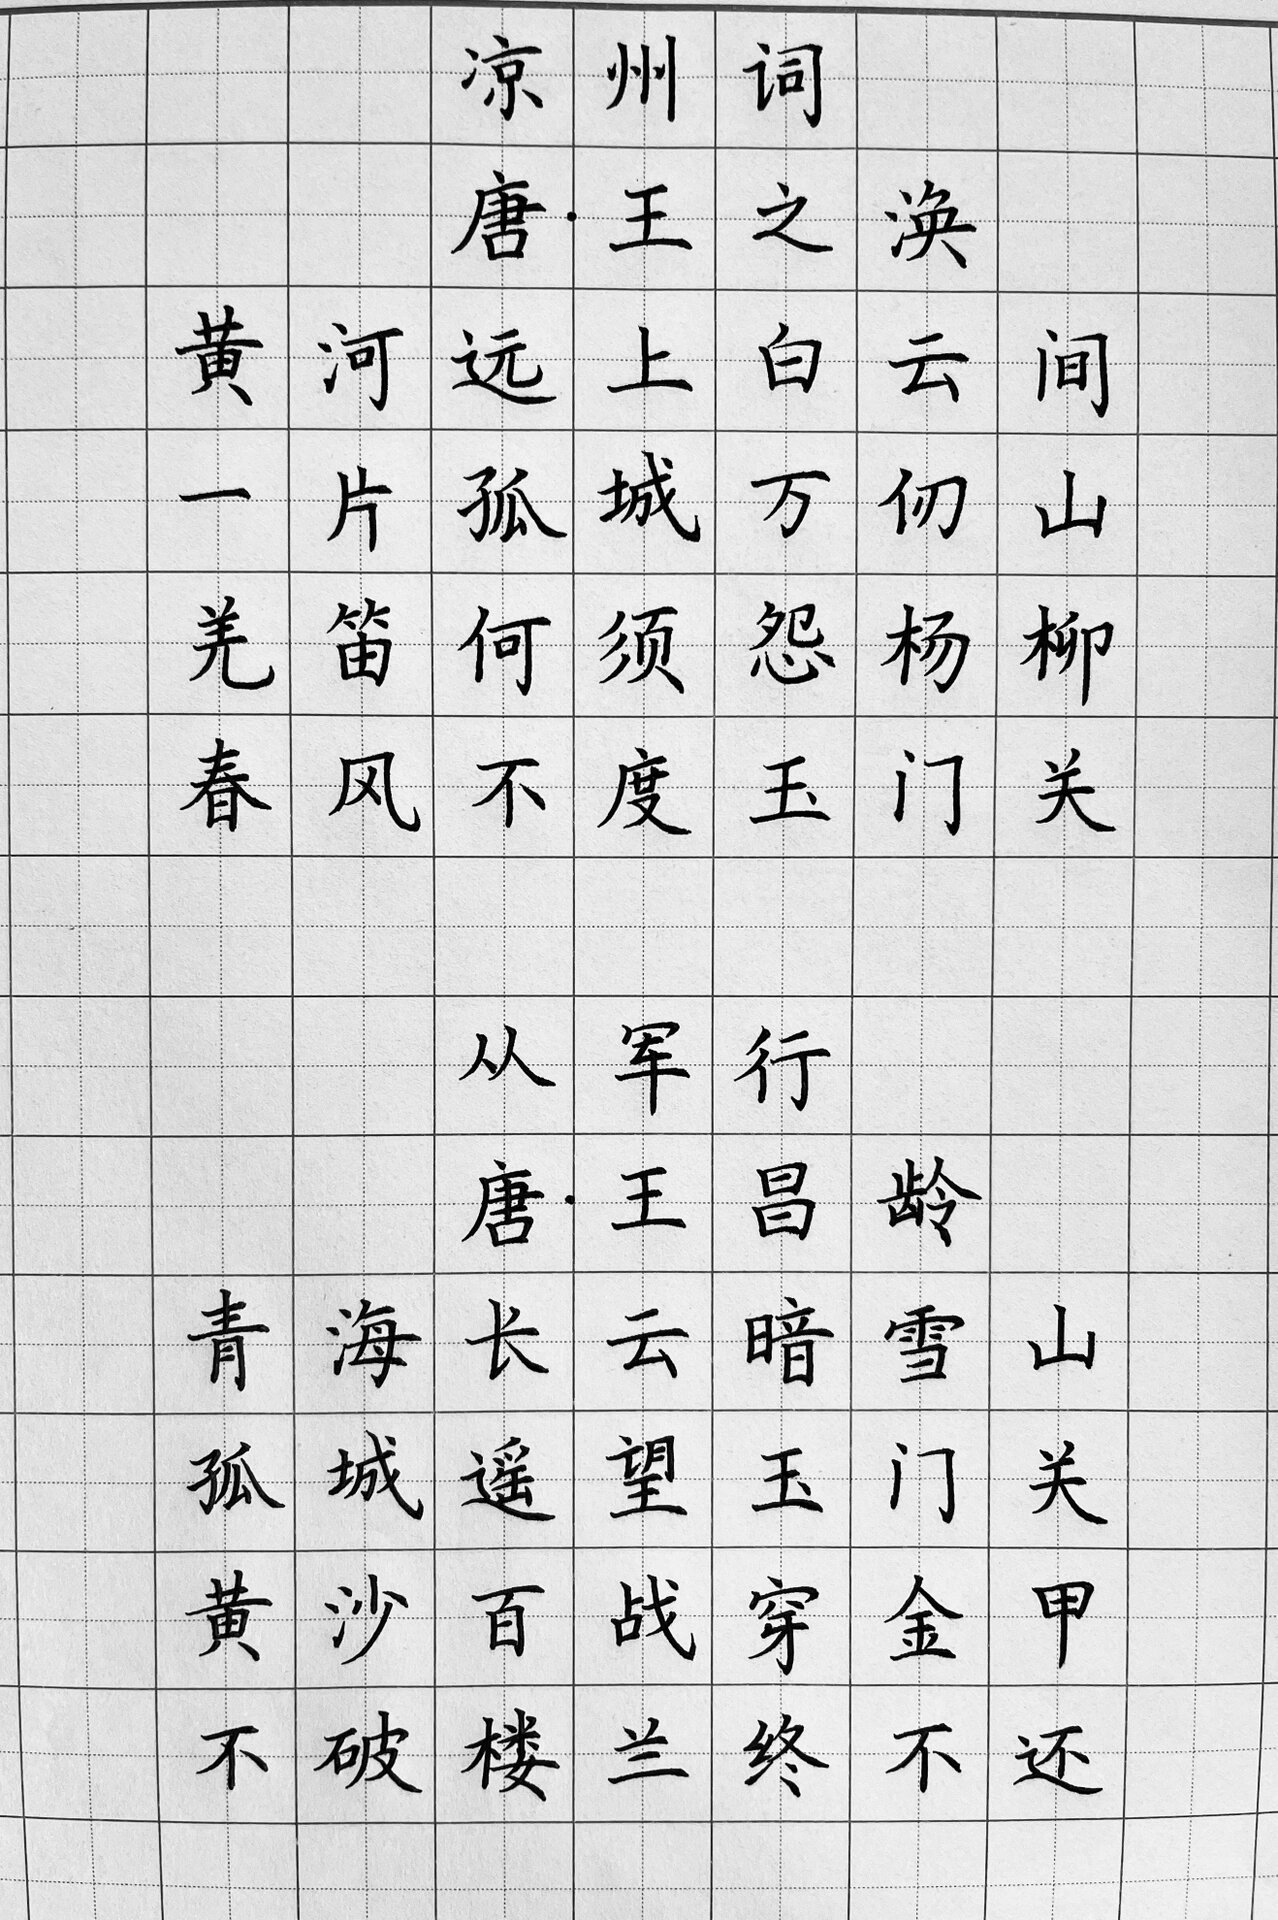 凉州词
唐·王之涣
黄河远上白云间
一片孤城万仞山
羌笛何须怨杨柳
春风不度玉门关
从军行
唐·王昌龄
青海长云暗雪山
孤城遥望玉门关
黄沙百战穿金甲
不破楼兰终不还